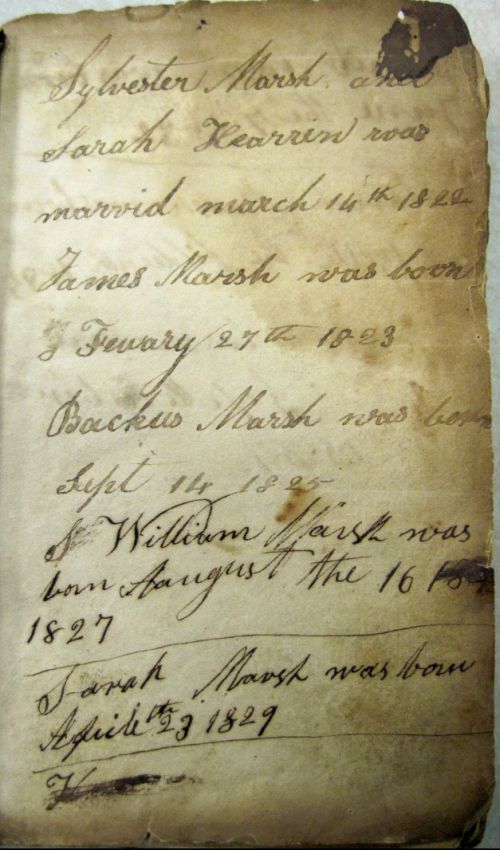 Sylvester Marsh and
Sarah Hearrin was
marrid march 14th 1822
James Marsh was born
Fevary 27th 1823
Backus Marsh was born
Sept 14 1825
William Marsh was
born Aangust the 16
1827
Sarah Marsh was born
Apile th 23 1829